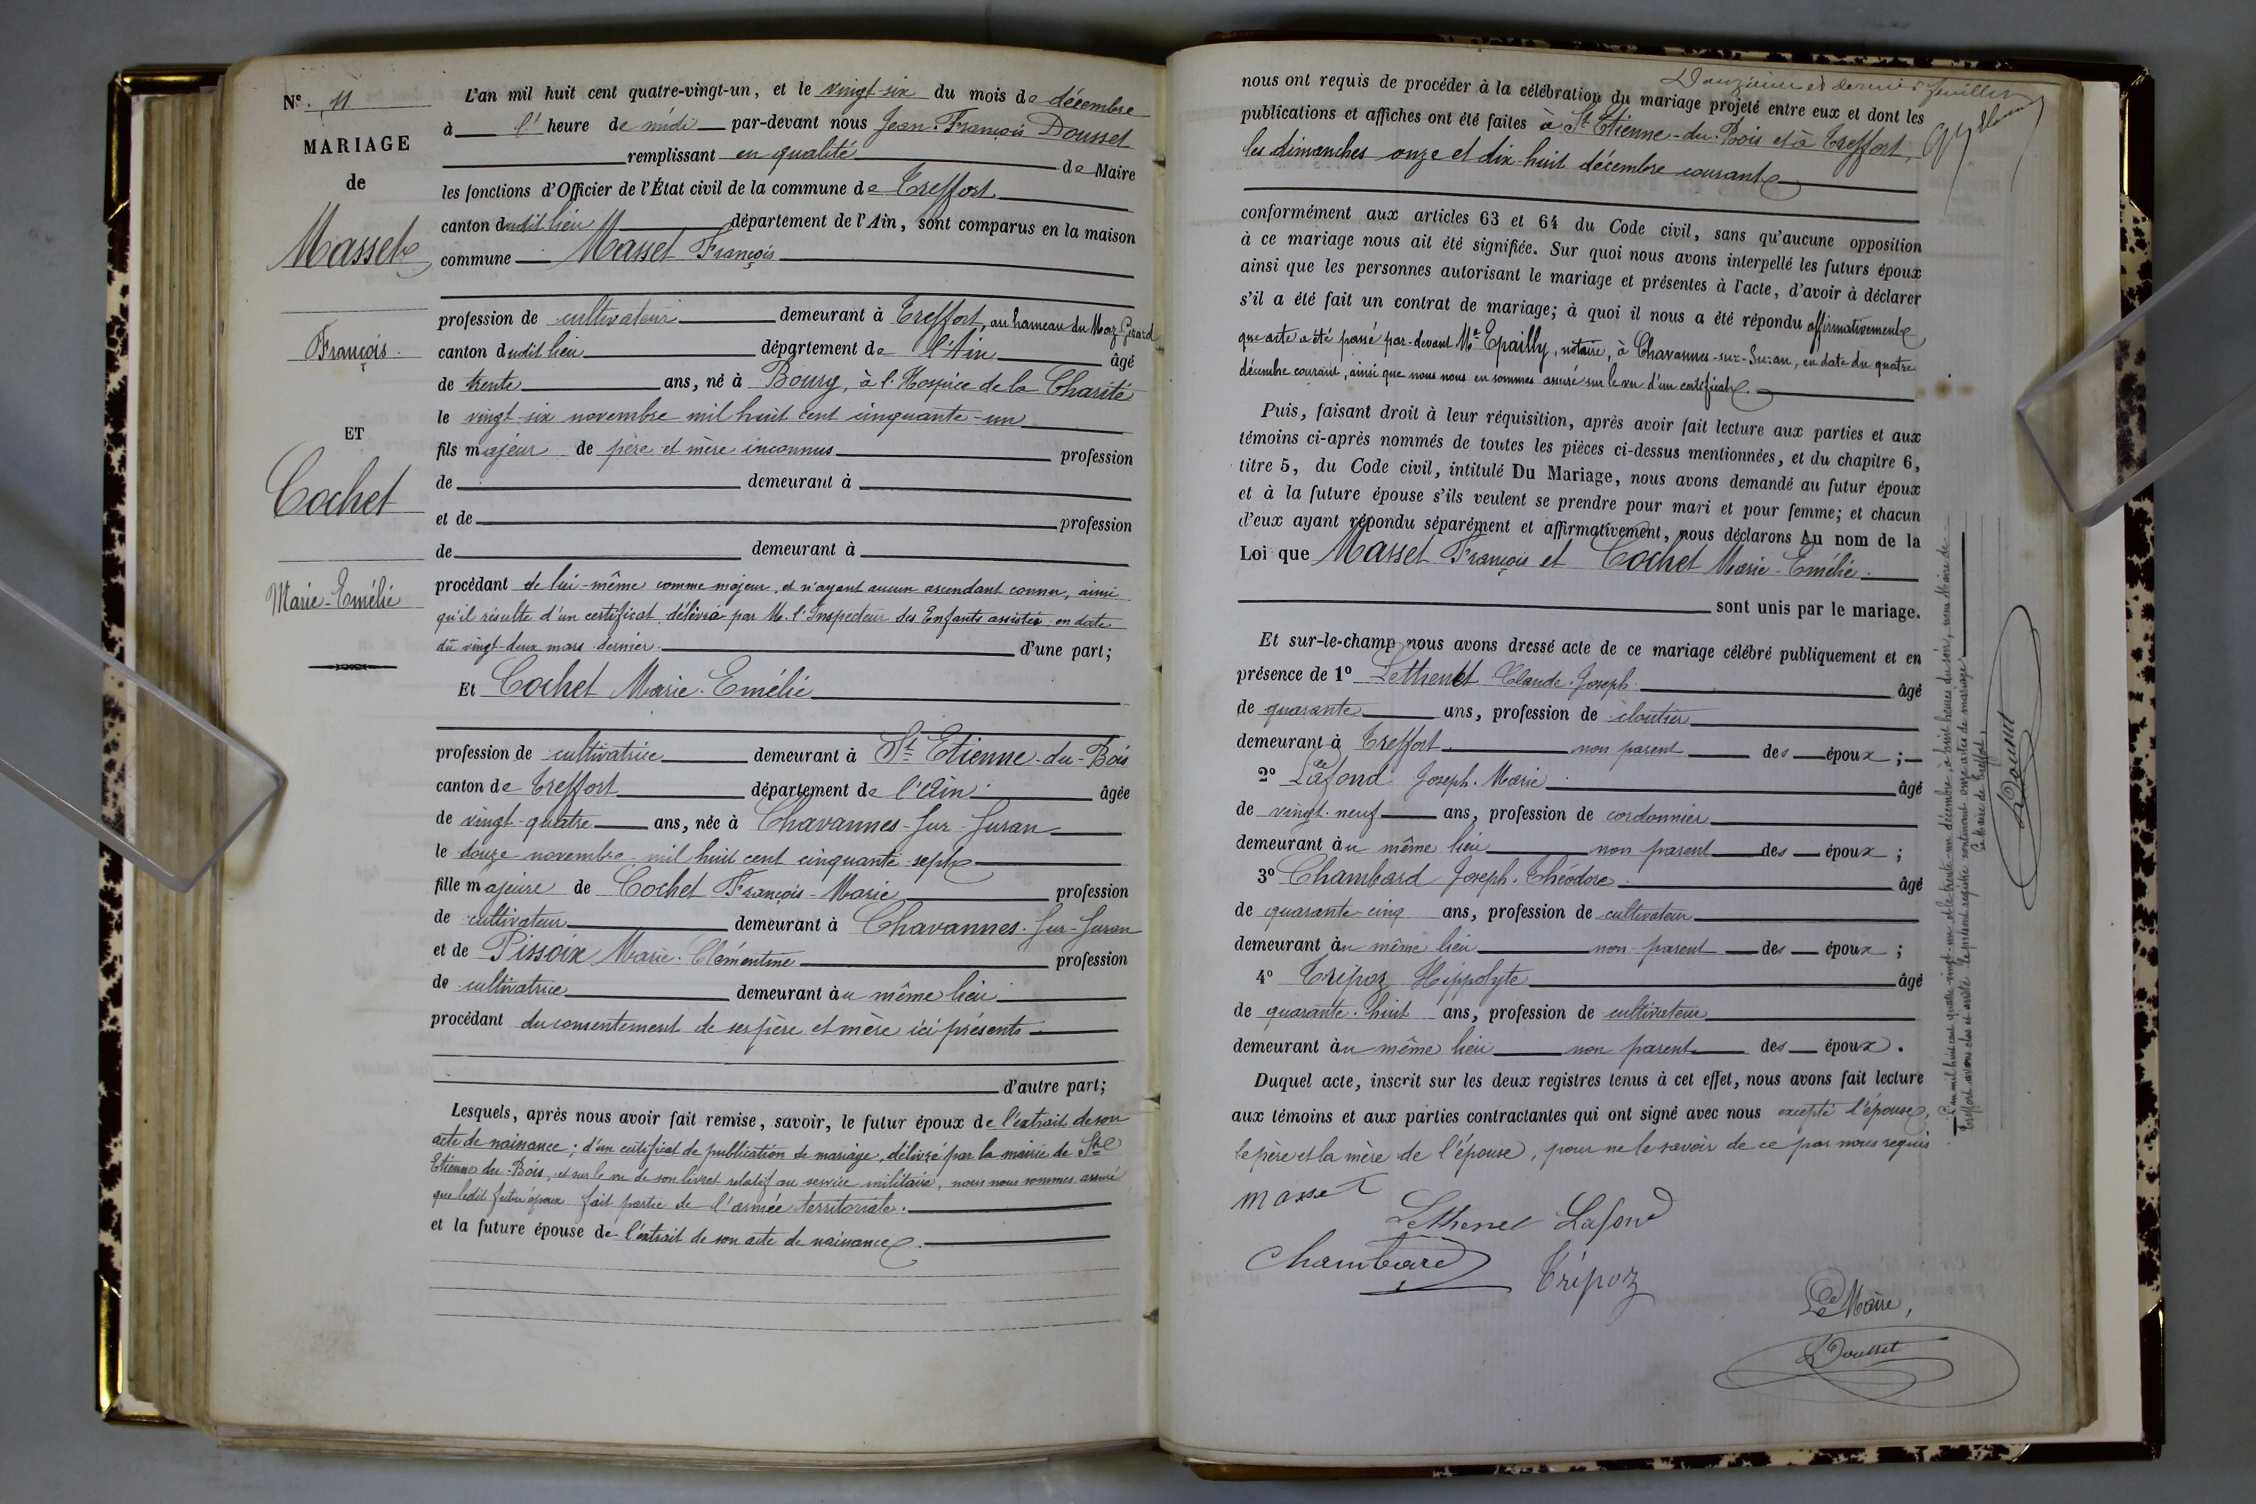 N°. 11
MARIAGE
de
Masset
François.
ET
Cochet
Marie-Emélie
L'an mil huit cent quatre-vingt-un, et le vingt-six du mois de décembre
à l' heure de midi par-devant nous Jean-François Dousset
remplissant en qualité de Maire
les fonctions d'Officier de l'État civil de la commune de Treffort
canton dudit lieu département de l'Ain, sont comparus en la maison
commune Masset François
profession de cultivateur demeurant à Treffort, au hameau du Maz-Girard
canton dudit lieu département de l'Ain âgé
de trente ans, né à Bourg, à l'Hospice de la Charité
le vingt-six novembre mil huit cent cinquante-un
fils majeur de père et mère inconnus profession
de demeurant à
et de profession
de demeurant à
procédant de lui-même comme majeur, et n'ayant aucun ascendant connu, ainsi
qu'il résulte d'un certificat délivré par M. l'Inspecteur des Enfants assistés en date
du vingt-deux mars dernier. d'une part;
Et Cochet Marie-Emélie
profession de cultivatrice demeurant à St Etienne-du-Bois
canton de Treffort département de l'Ain âgée
de vingt-quatre ans, née à Chavannes-sur-Suran
le douze novembre mil huit cent cinquante-sept
fille majeure de Cochet François-Marie profession
de cultivateur demeurant à Chavannes-sur-Suran
et de Pissoix Marie-Clémentine profession
de cultivatrice demeurant au même lieu
procédant du consentement de ses père et mère ici présents
d'autre part;
Lesquels, après nous avoir fait remise, savoir, le futur époux de l'extrait de son
acte de naissance; d'un certificat de publication de mariage, délivré par la mairie de St
Etienne-du-Bois, et sur le vu de son livret relatif au service militaire, nous nous sommes assuré
que ledit futur époux fait partie de l'armée territoriale.
et la future épouse de l'extrait de son acte de naissance.
Douzième et dernier feuillet
nous ont requis de procéder à la célébration du mariage projeté entre eux et dont les
publications et affiches ont été faites à St Etienne-du-Bois et à Treffort,
les dimanches onze et dix-huit décembre courant
conformément aux articles 63 et 64 du Code civil, sans qu'aucune opposition
à ce mariage nous ait été signifiée. Sur quoi nous avons interpellé les futurs époux
ainsi que les personnes autorisant le mariage et présentes à l'acte, d'avoir à déclarer
s'il a été fait un contrat de mariage; à quoi il nous a été répondu affirmativement
que acte a été passé par-devant Me Epailly, notaire, à Chavannes-sur-Suran, en date du quatre
décembre courant, ainsi que nous nous en sommes assuré sur le vu d'un certificat.
Puis, faisant droit à leur réquisition, après avoir fait lecture aux parties et aux
témoins ci-après nommés de toutes les pièces ci-dessus mentionnées, et du chapitre 6,
titre 5, du Code civil, intitulé Du Mariage, nous avons demandé au futur époux
et à la future épouse s'ils veulent se prendre pour mari et pour femme; et chacun
d'eux ayant répondu séparément et affirmativement, nous déclarons Au nom de la
Loi que Masset François et Cochet Marie-Emélie.
sont unis par le mariage.
Et sur-le-champ nous avons dressé acte de ce mariage célébré publiquement et en
présence de 1° Lethenet Claude-Joseph âgé
de quarante ans, profession de cloutier
demeurant à Treffort non parent des époux;
2° Lafond Joseph-Marie âgé
de vingt-neuf ans, profession de cordonnier
demeurant au même lieu non parent des époux;
3° Chambard Joseph-Théodore âgé
de quarante-cinq ans, profession de cultivateur
demeurant au même lieu non parent des époux;
4° Trépoz Hippolyte âgé
de quarante-huit ans, profession de cultivateur
demeurant au même lieu non parent des époux.
Duquel acte, inscrit sur les deux registres tenus à cet effet, nous avons fait lecture
aux témoins et aux parties contractantes qui ont signé avec nous excepté l'épouse,
le père et la mère de l'épouse, pour ne le savoir de ce par nous requis
masset
Lethenet Lafond
Chambard
Trépoz
Le Maire,
Dousset
L'an mil huit cent quatre-vingt-un et le trente-un décembre, à huit heures du soir, nous Maire de
Treffort avons clos et arrêté le présent registre contenant onze actes de mariage
Le Maire de Treffort,
Dousset